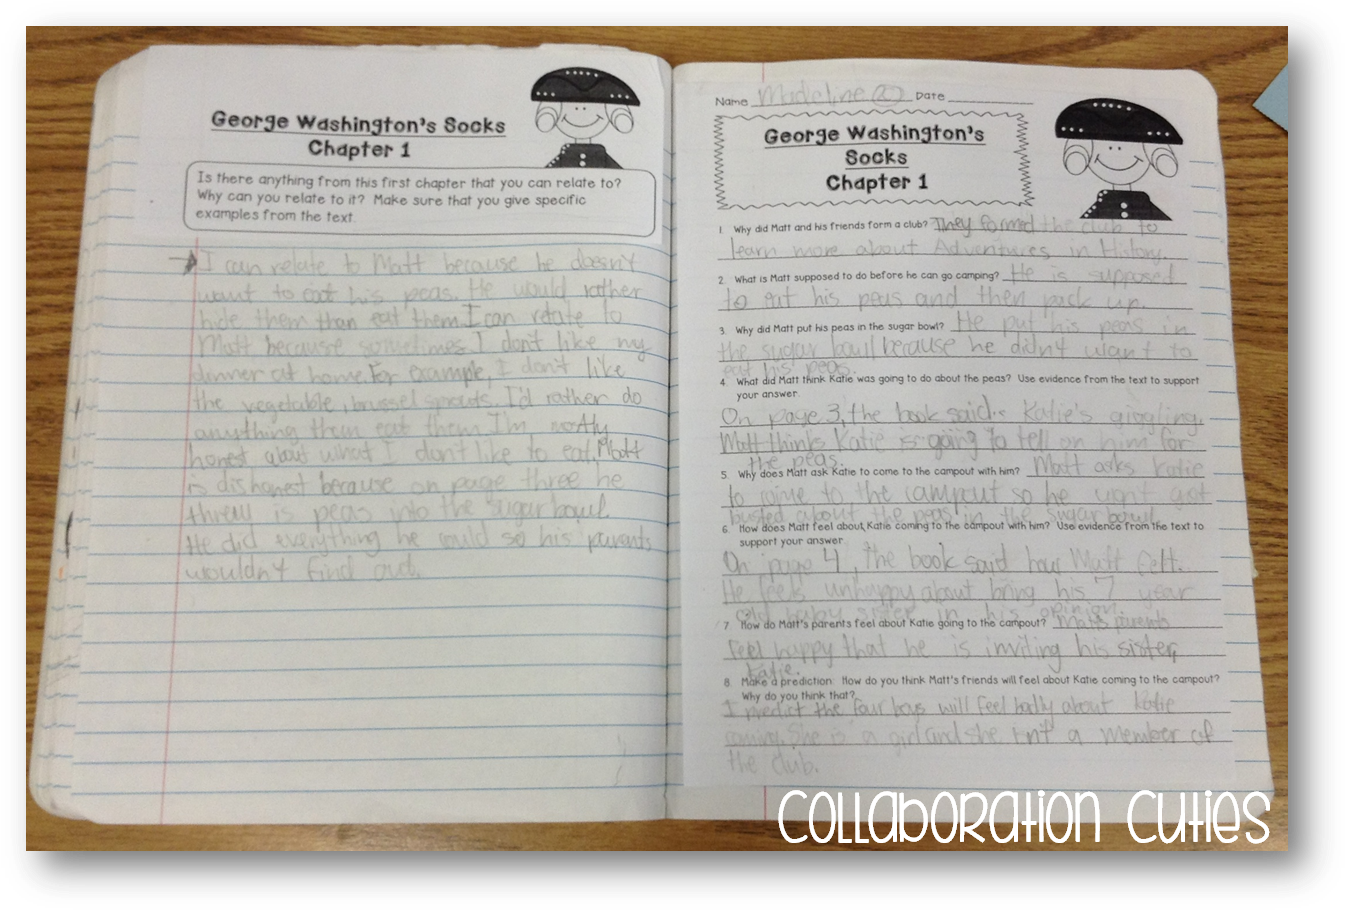 George Washington's Socks
Chapter 1
Is there anything from this first chapter that you can relate to?
Why can you relate to it? Make sure that you give specific
examples from the text.
I can relate to Matt because he doesn't
want to eat his peas. He would rather
hide them than eat them. I can relate to
Matt because sometimes I don't like my
dinner at home. For example, I don't like
the vegetable, brussel sprouts. I'd rather do
anything then eat them. I'm mostly
honest about what I don't like to eat. Matt
is dishonest because on page three he
threw is peas into the sugar bowl.
He did everything he could so his parents
wouldn't find out.
Name Madeline Date
George Washington's
Socks
Chapter 1
1. Why did Matt and his friends form a club? They formed the club to
learn more about Adventures in History.
2. What is Matt supposed to do before he can go camping? He is supposed
to eat his peas and then pack up.
3. Why did Matt put his peas in the sugar bowl? He put his peas in
the sugar bowl because he didn't want to
eat his peas.
4. What did Matt think Katie was going to do about the peas? Use evidence from the text to support
your answer.
On page 3, the book said.. Katie's giggling.
Matt thinks Katie is going to tell on him for
the peas.
5. Why does Matt ask Katie to come to the campout with him? Matt asks Katie
to come to the campout so he won't get
busted about the peas in the sugar bowl.
6. How does Matt feel about Katie coming to the campout with him? Use evidence from the text to
support your answer.
On page 4, the book said how Matt felt.
He feels unhappy about bring his 7 year
old baby sister in his opinion.
7. How do Matt's parents feel about Katie going to the campout? Matt's parents
feel happy that he is inviting his sister,
Katie.
8. Make a prediction: How do you think Matt's friends will feel about Katie coming to the campout?
Why do you think that?
I predict the four boys will feel badly about Katie
coming. She is a girl and she isn't a member of
the club.
Collaboration Cuties